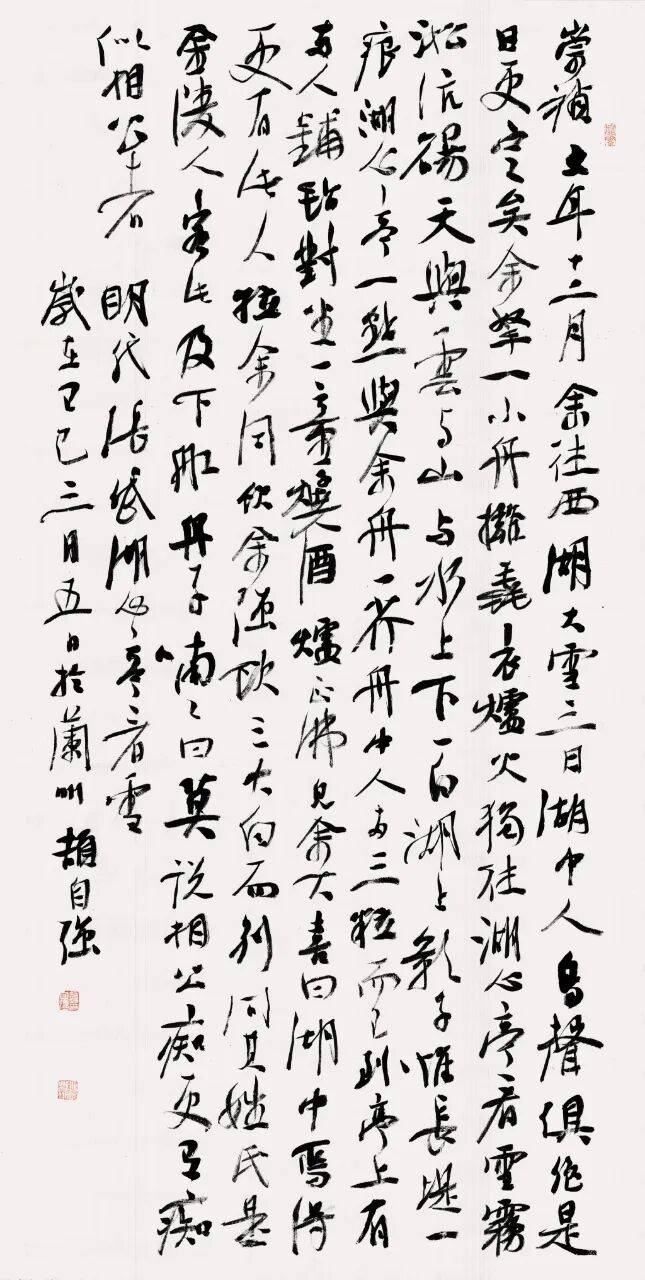 崇禎五年十二月余往西湖大雪三日湖中人鳥聲俱絕是
日更定矣余拏一小舟擁毳衣爐火獨往湖心亭看雪霧
淞沆碭天與雲与山与水上下一白湖上影子惟長堤一
痕湖心亭一點與余舟一芥舟中人兩三粒而已到亭上有
兩人鋪氈對坐一童燒酒爐正沸見余大喜曰湖中焉得
更有此人拉余同飲余强飲三大白而別問其姓氏是
金陵人客此及下船舟子喃々曰莫說相公痴更有痴
似相公者 明代張岱湖心亭看雪
歲在乙巳三月五日於蘭州 頡自强